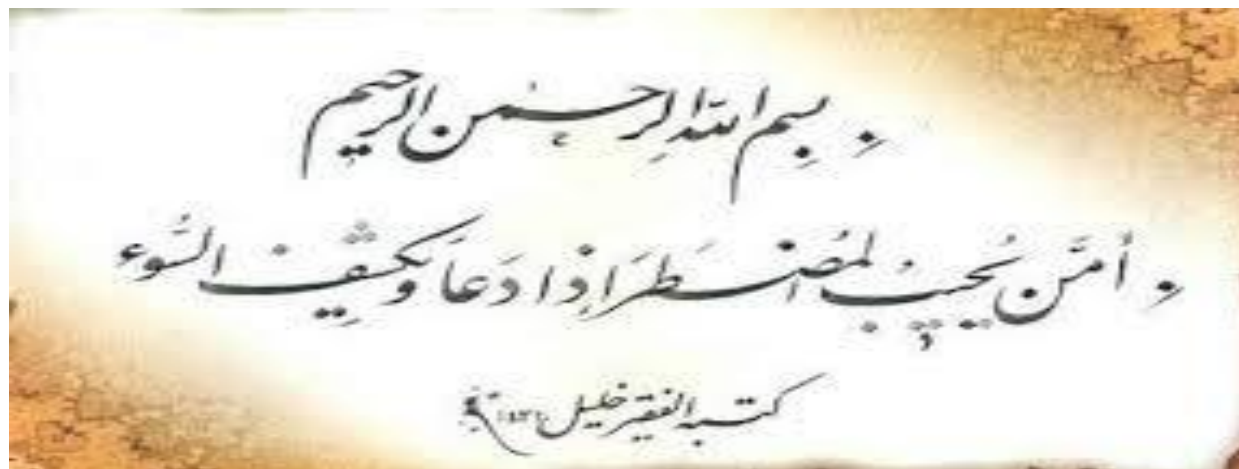 بسم الله الرحمن الرحيم
أَمَّن يُجيبُ المُضطَرَ اِذا دَعَا وَيَكشِفُ السُّوء
كتبه الفقير خليل